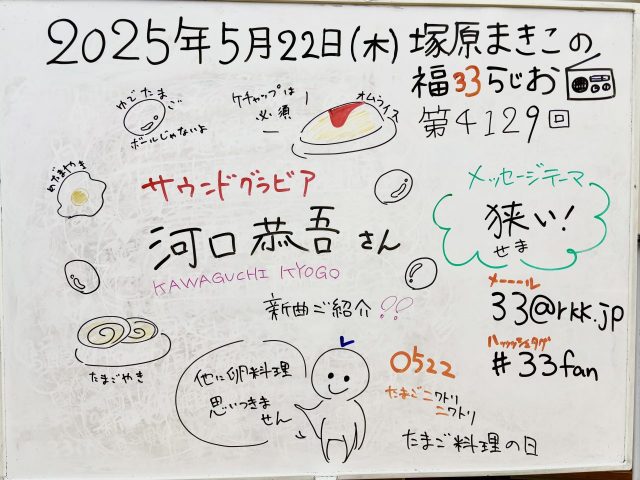 2025年5月22日(木) 塚原まきこの
福33らじお
第4129回
ゆでたまご
ボールじゃないよ
ケチャップは
必須!
オムライス
めだまやき
サウンドグラビア
河口恭吾さん
KAWAGUCHI KYOGO
新曲ご紹介
メッセージテーマ
狭い!
せま
メーール
33@rkk.jp
ハッシュタグ
#33fan
たまごやき
他に卵料理
思いつきま
せん
0522
たまごニワトリ
ニワトリ
たまご料理の日